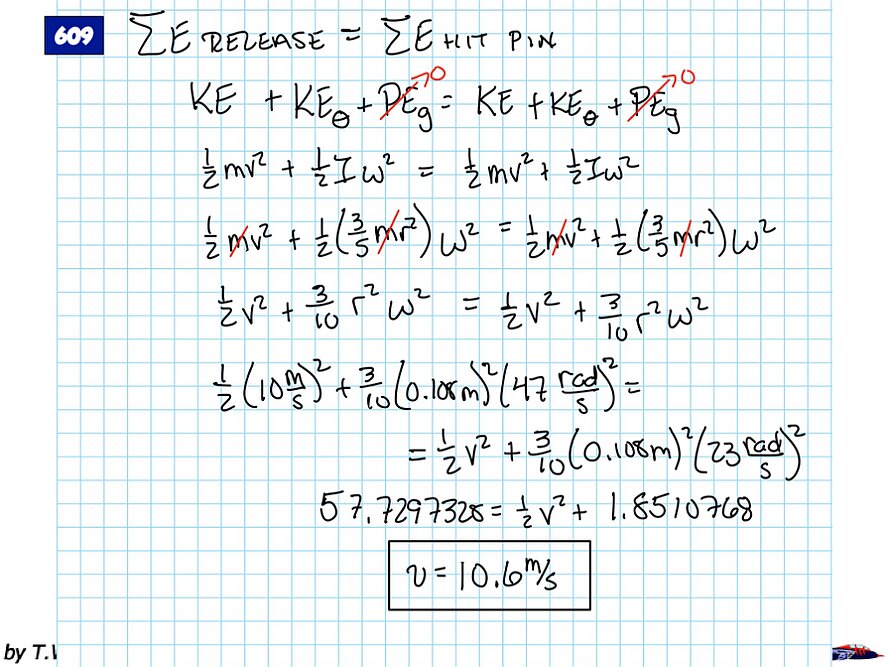 609 ΣE RELEASE = ΣE HIT PIN
KE + KE_θ + PE_g→0 = KE + KE_θ + PE_g→0
½mv² + ½Iω² = ½mv² + ½Iω²
½mv² + ½(3/5 mr²)ω² = ½mv² + ½(3/5 mr²)ω²
½v² + 3/10 r²ω² = ½v² + 3/10 r²ω²
½(10 m/s)² + 3/10(0.108m)²(47 rad/s)² =
= ½v² + 3/10(0.108m)²(23 rad/s)²
57.7297328 = ½v² + 1.8510768
v = 10.6 m/s
by T.